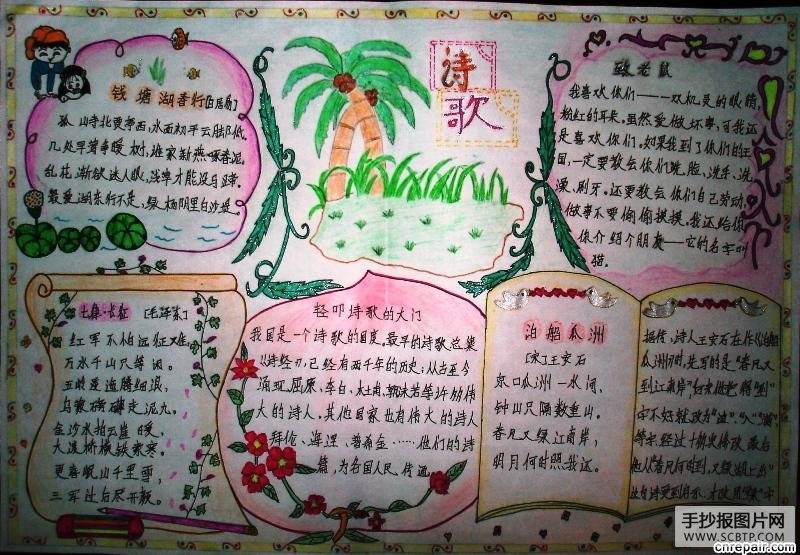 诗
歌
钱塘湖春行[白居易]
孤山寺北更亭西,水面初平云脚低。
几处早莺争暖树,谁家新燕啄春泥。
乱花渐欲迷人眼,浅草才能没马蹄。
最爱湖东行不足,绿杨阴里白沙堤。
致老鼠
我喜欢你们——双机灵的眼睛,
粉红的耳朵,虽然爱做坏事,可我还
是喜欢你们。如果我到了你们的王
国,一定要教会你们洗脸、洗手、洗
澡、刷牙。还要教会你们自己劳动,
做事不要偷偷摸摸。我还给你
你介绍个朋友——它的名字叫
猫。
七律·长征 [毛泽东]
红军不怕远征难,
万水千山只等闲。
五岭逶迤腾细浪,
乌蒙磅礴走泥丸。
金沙水拍云崖暖,
大渡桥横铁索寒。
更喜岷山千里雪,
三军过后尽开颜。
轻叩诗歌的大门
我国是一个诗歌的国度,最早的诗歌总集
《诗经》,已经有两千年的历史;从古至今
涌现屈原、李白、杜甫、郭沫若等许多伟
大的诗人。其他国家也有伟大的诗人
拜伦、海涅、普希金……他们的诗
篇,为各国人民传诵
泊船瓜洲
[宋]王安石
京口瓜洲一水间,
钟山只隔数重山。
春风又绿江南岸,
明月何时照我还。
据传,诗人王安石在作《泊船
瓜洲》时,先写的是“春风又
到江南岸”
字不好就改为“过”、“入”“满”
等字,经过十多次修改,最后
手抄报图片网
WWW.SCBTP.COM
cnrepair.com